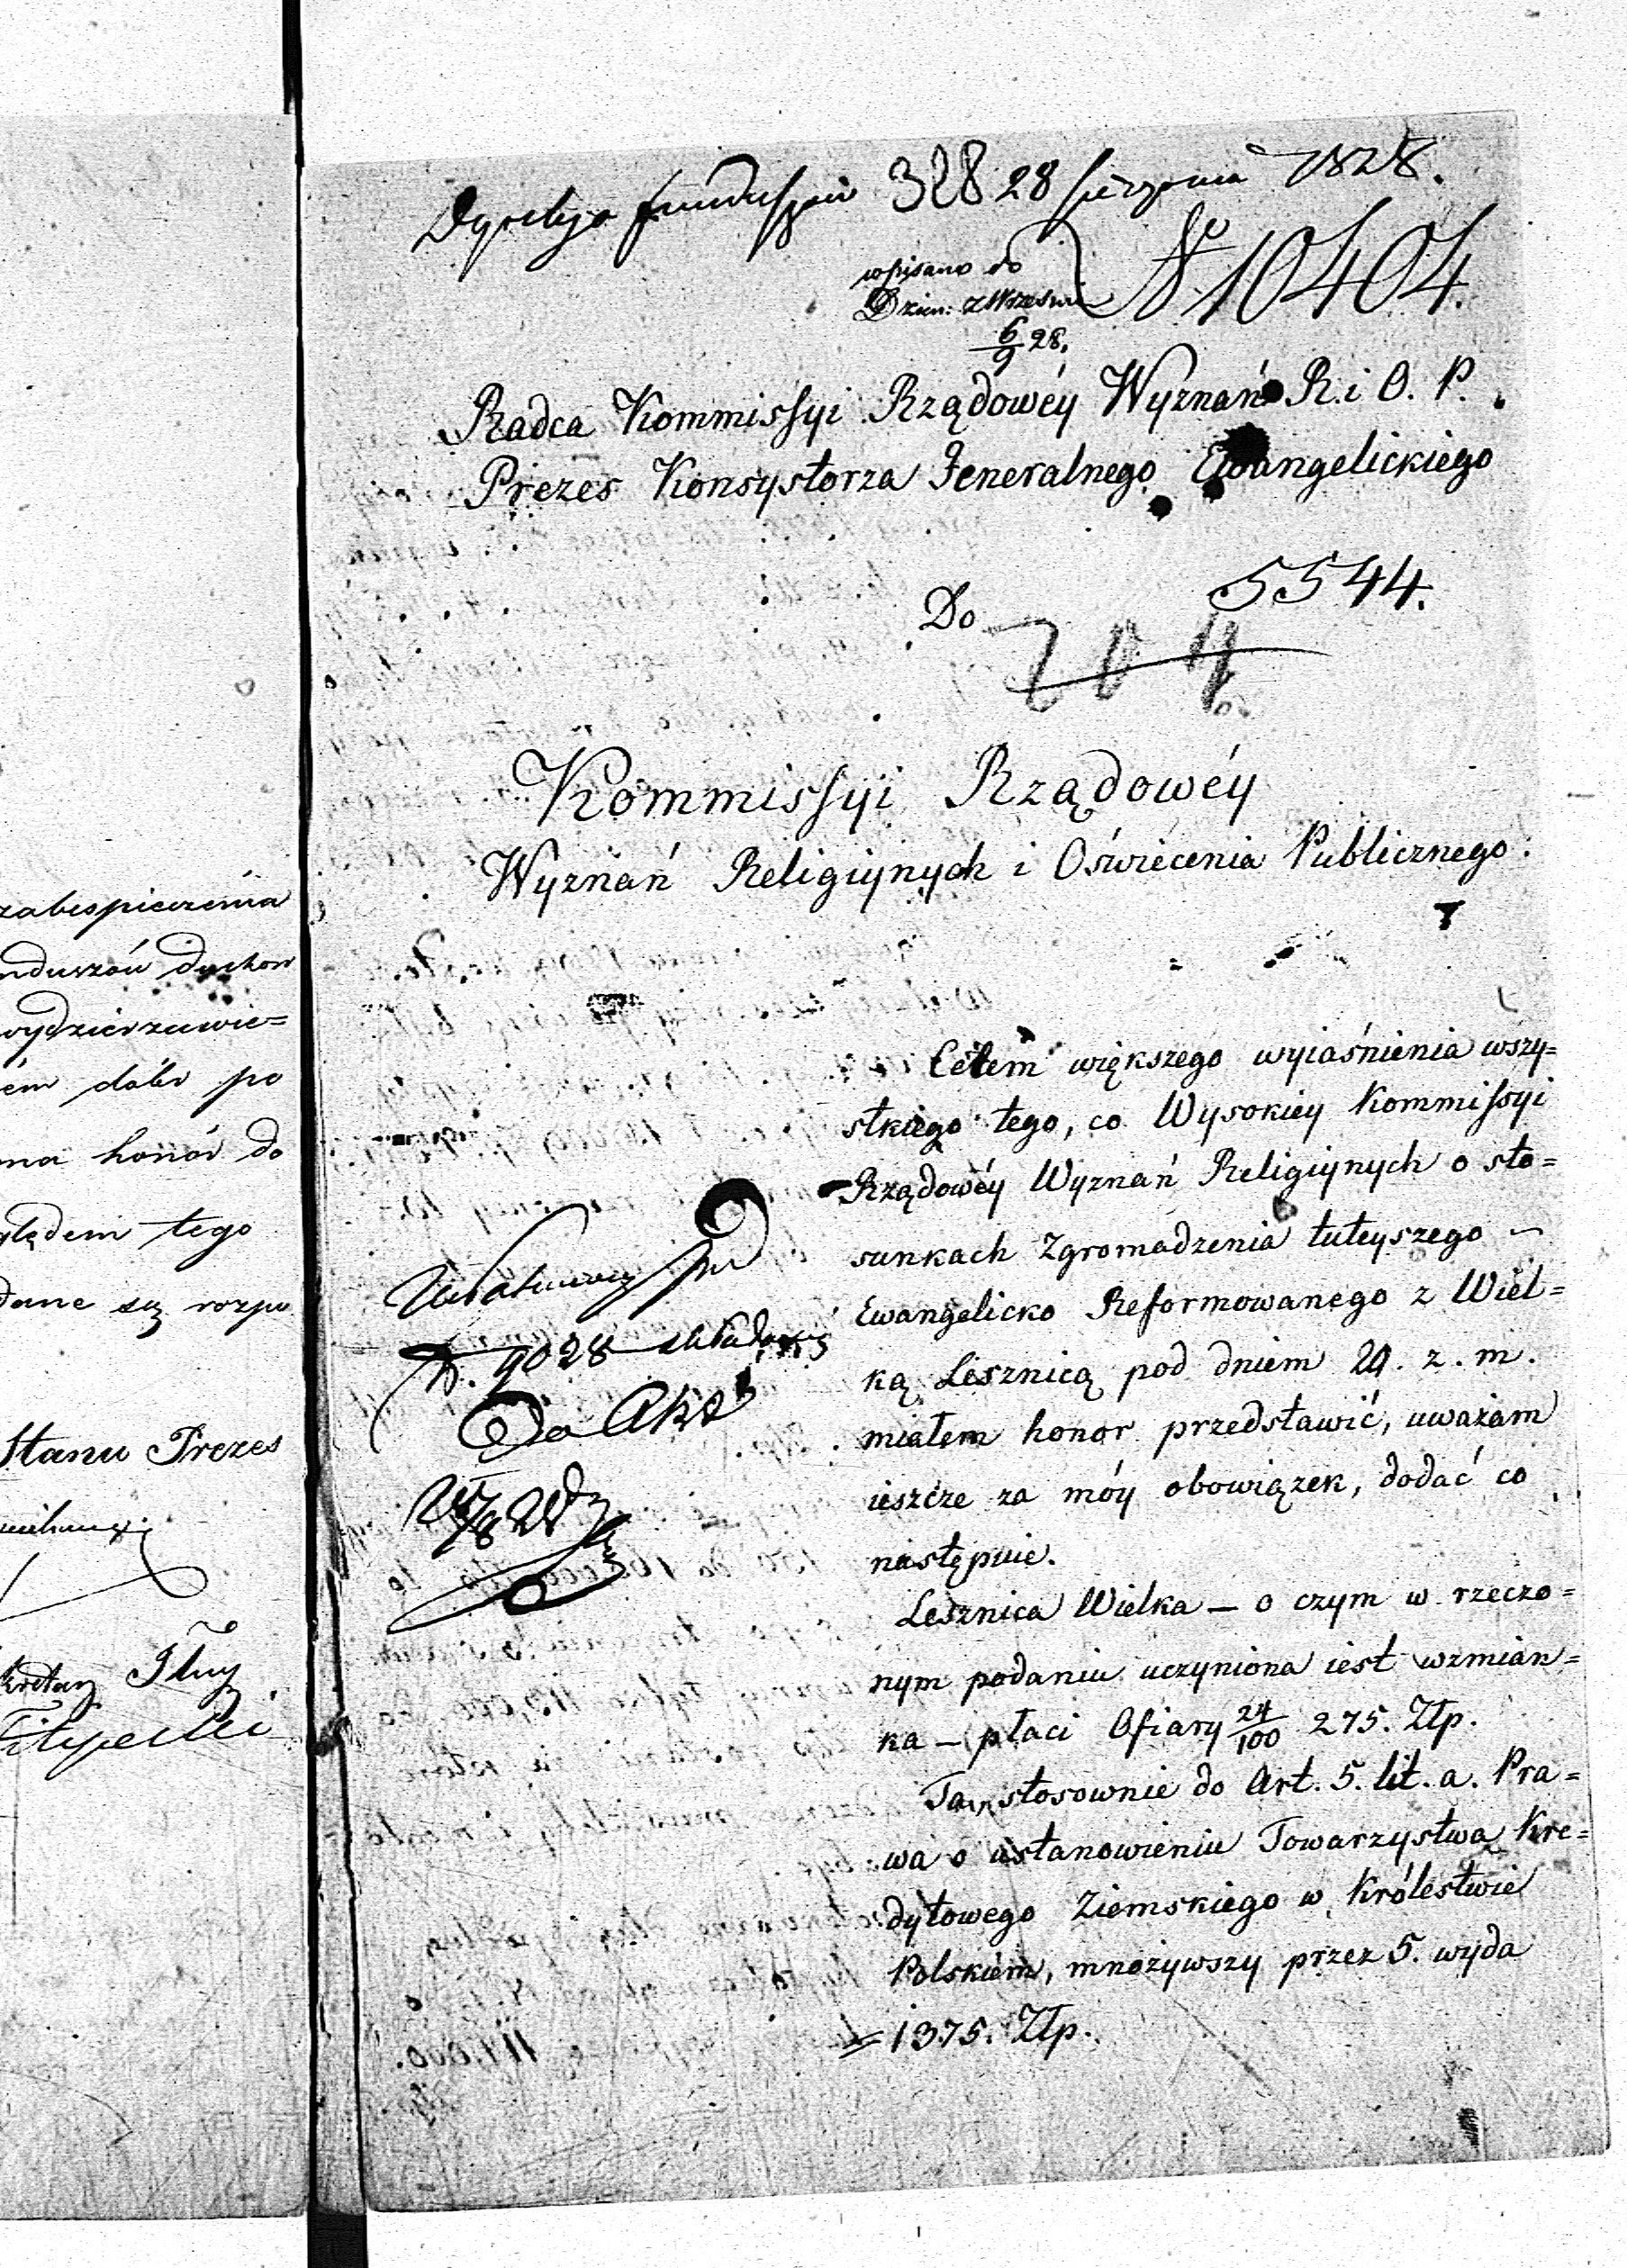 zabespieczenia
nduszów duchow
wydzierzawie=
ém dóbr po
ma honor do
ględem tego
dane są rozpo
Stanu Prezes
328 28 sierpnia 1828.
wpisano do
Dzien: z Wrzesnia
6/9 28.
No 10404.
Radca Kommissyi Rządowéy Wyznań R. i O. P.
Prezes Konsystorza Jeneralnego Ewangelickiego
5544.
Do
204
Kommissyi Rządowéy
Wyznań Religiynych i Oświecenia Publicznego.
Celem większego wyiaśnienia wszy=
stkiego tego, co Wysokiey Kommissyi
Rządowéy Wyznań Religiynych o sto=
sunkach Zgromadzenia tuteyszego
Ewangelicko Reformowanego z Wiel=
ką Lesznicą pod dniem 29. z. m.
miałem honor przedstawić, uważam
ieszcze za móy obowiązek, dodać co
następuie.
Lesznica Wielka — o czym w rzeczo=
nym podaniu uczyniona iest wzmian=
ka — płaci Ofiary 24/100 275. Złp.
Ta, stosownie do Art. 5. lit. a. Pra=
wa o ustanowieniu Towarzystwa Kre=
dytowego Ziemskiego w Królestwie
Polskiém, mnożywszy przez 5. wyda
= 1375. Złp.
N. 9028
Do Akt